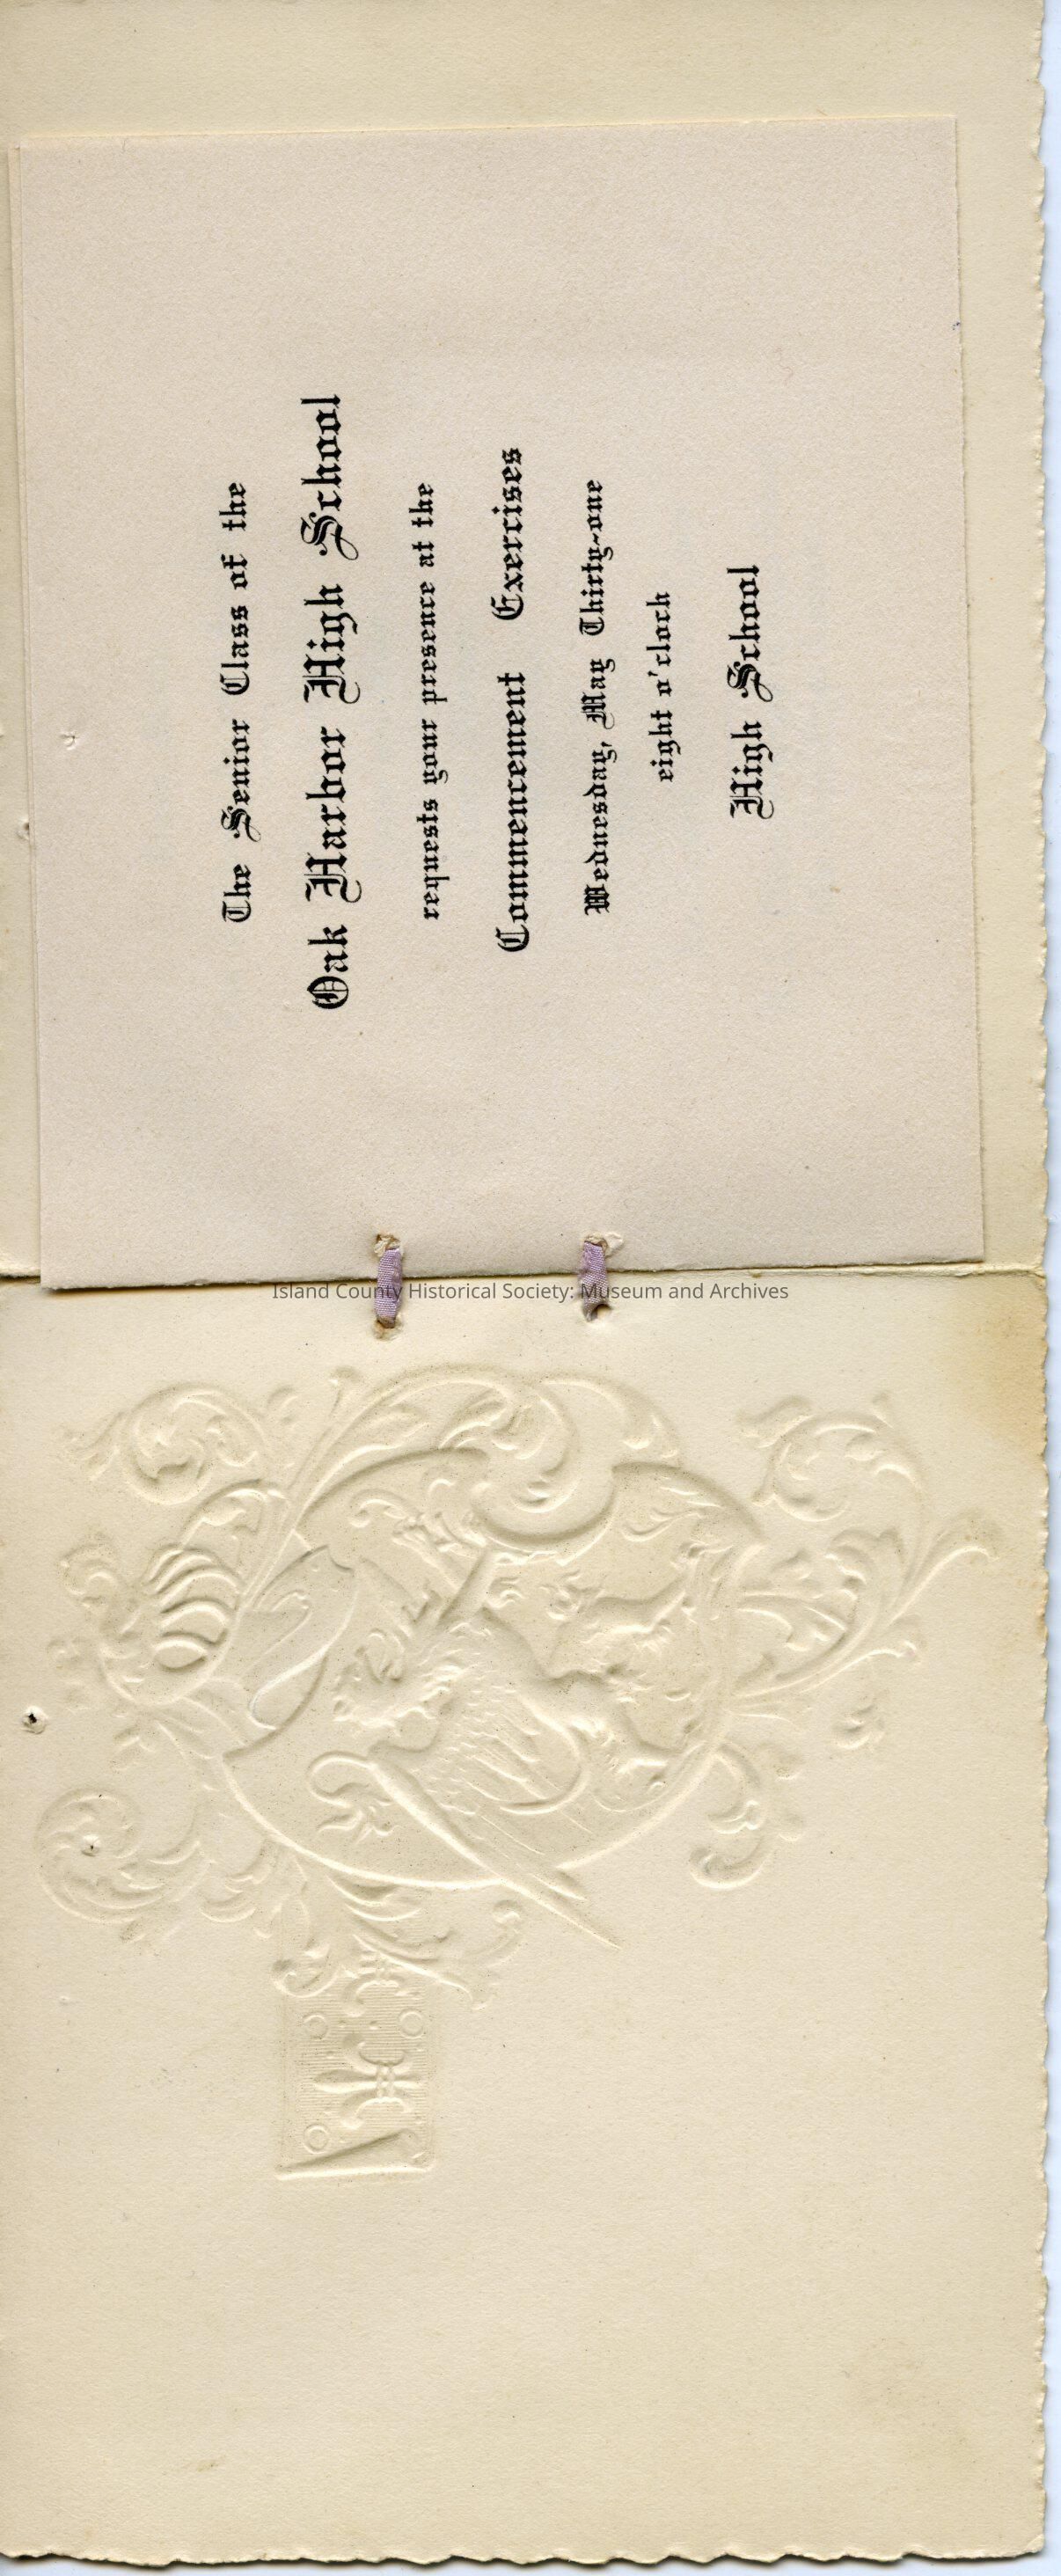 The Senior Class of the
Oak Harbor High School
requests your presence at the
Commencement Exercises
Wednesday, May Thirty-one
eight o'clock
High School
Island County Historical Society: Museum and Archives